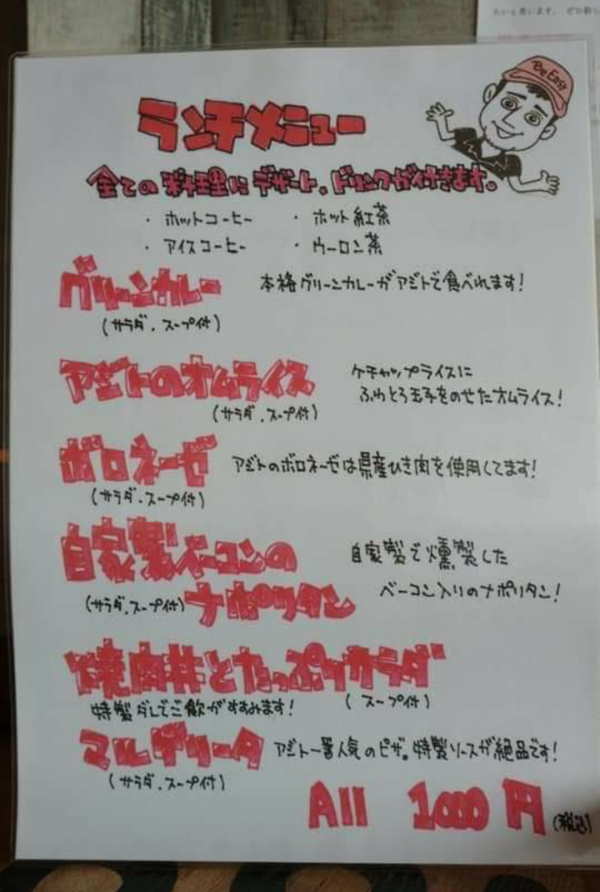 Be Easy
ランチメニュー
全ての料理にデザート。ドリンクが付きます。
・ホットコーヒー ・ホット紅茶
・アイスコーヒー ・ウーロン茶
グリーンカレー 本格グリーンカレーがアジトで食べれます!
(サラダ.スープ付)
アジトのオムライス ケチャップライスに
(サラダ.スープ付) ふわとろ玉子をのせたオムライス!
ボロネーゼ アジトのボロネーゼは県産ひき肉を使用してます!
(サラダ.スープ付)
自家製ベーコンの 自家製で燻製した
(サラダ.スープ付) ナポリタン ベーコン入りのナポリタン!
焼肉丼とたっぷりサラダ
特製ダレでご飯がすすみます! (スープ付)
マルゲリータ アジト一番人気のピザ。特製ソースが絶品です!
(サラダ.スープ付)
All 1000円(税込)